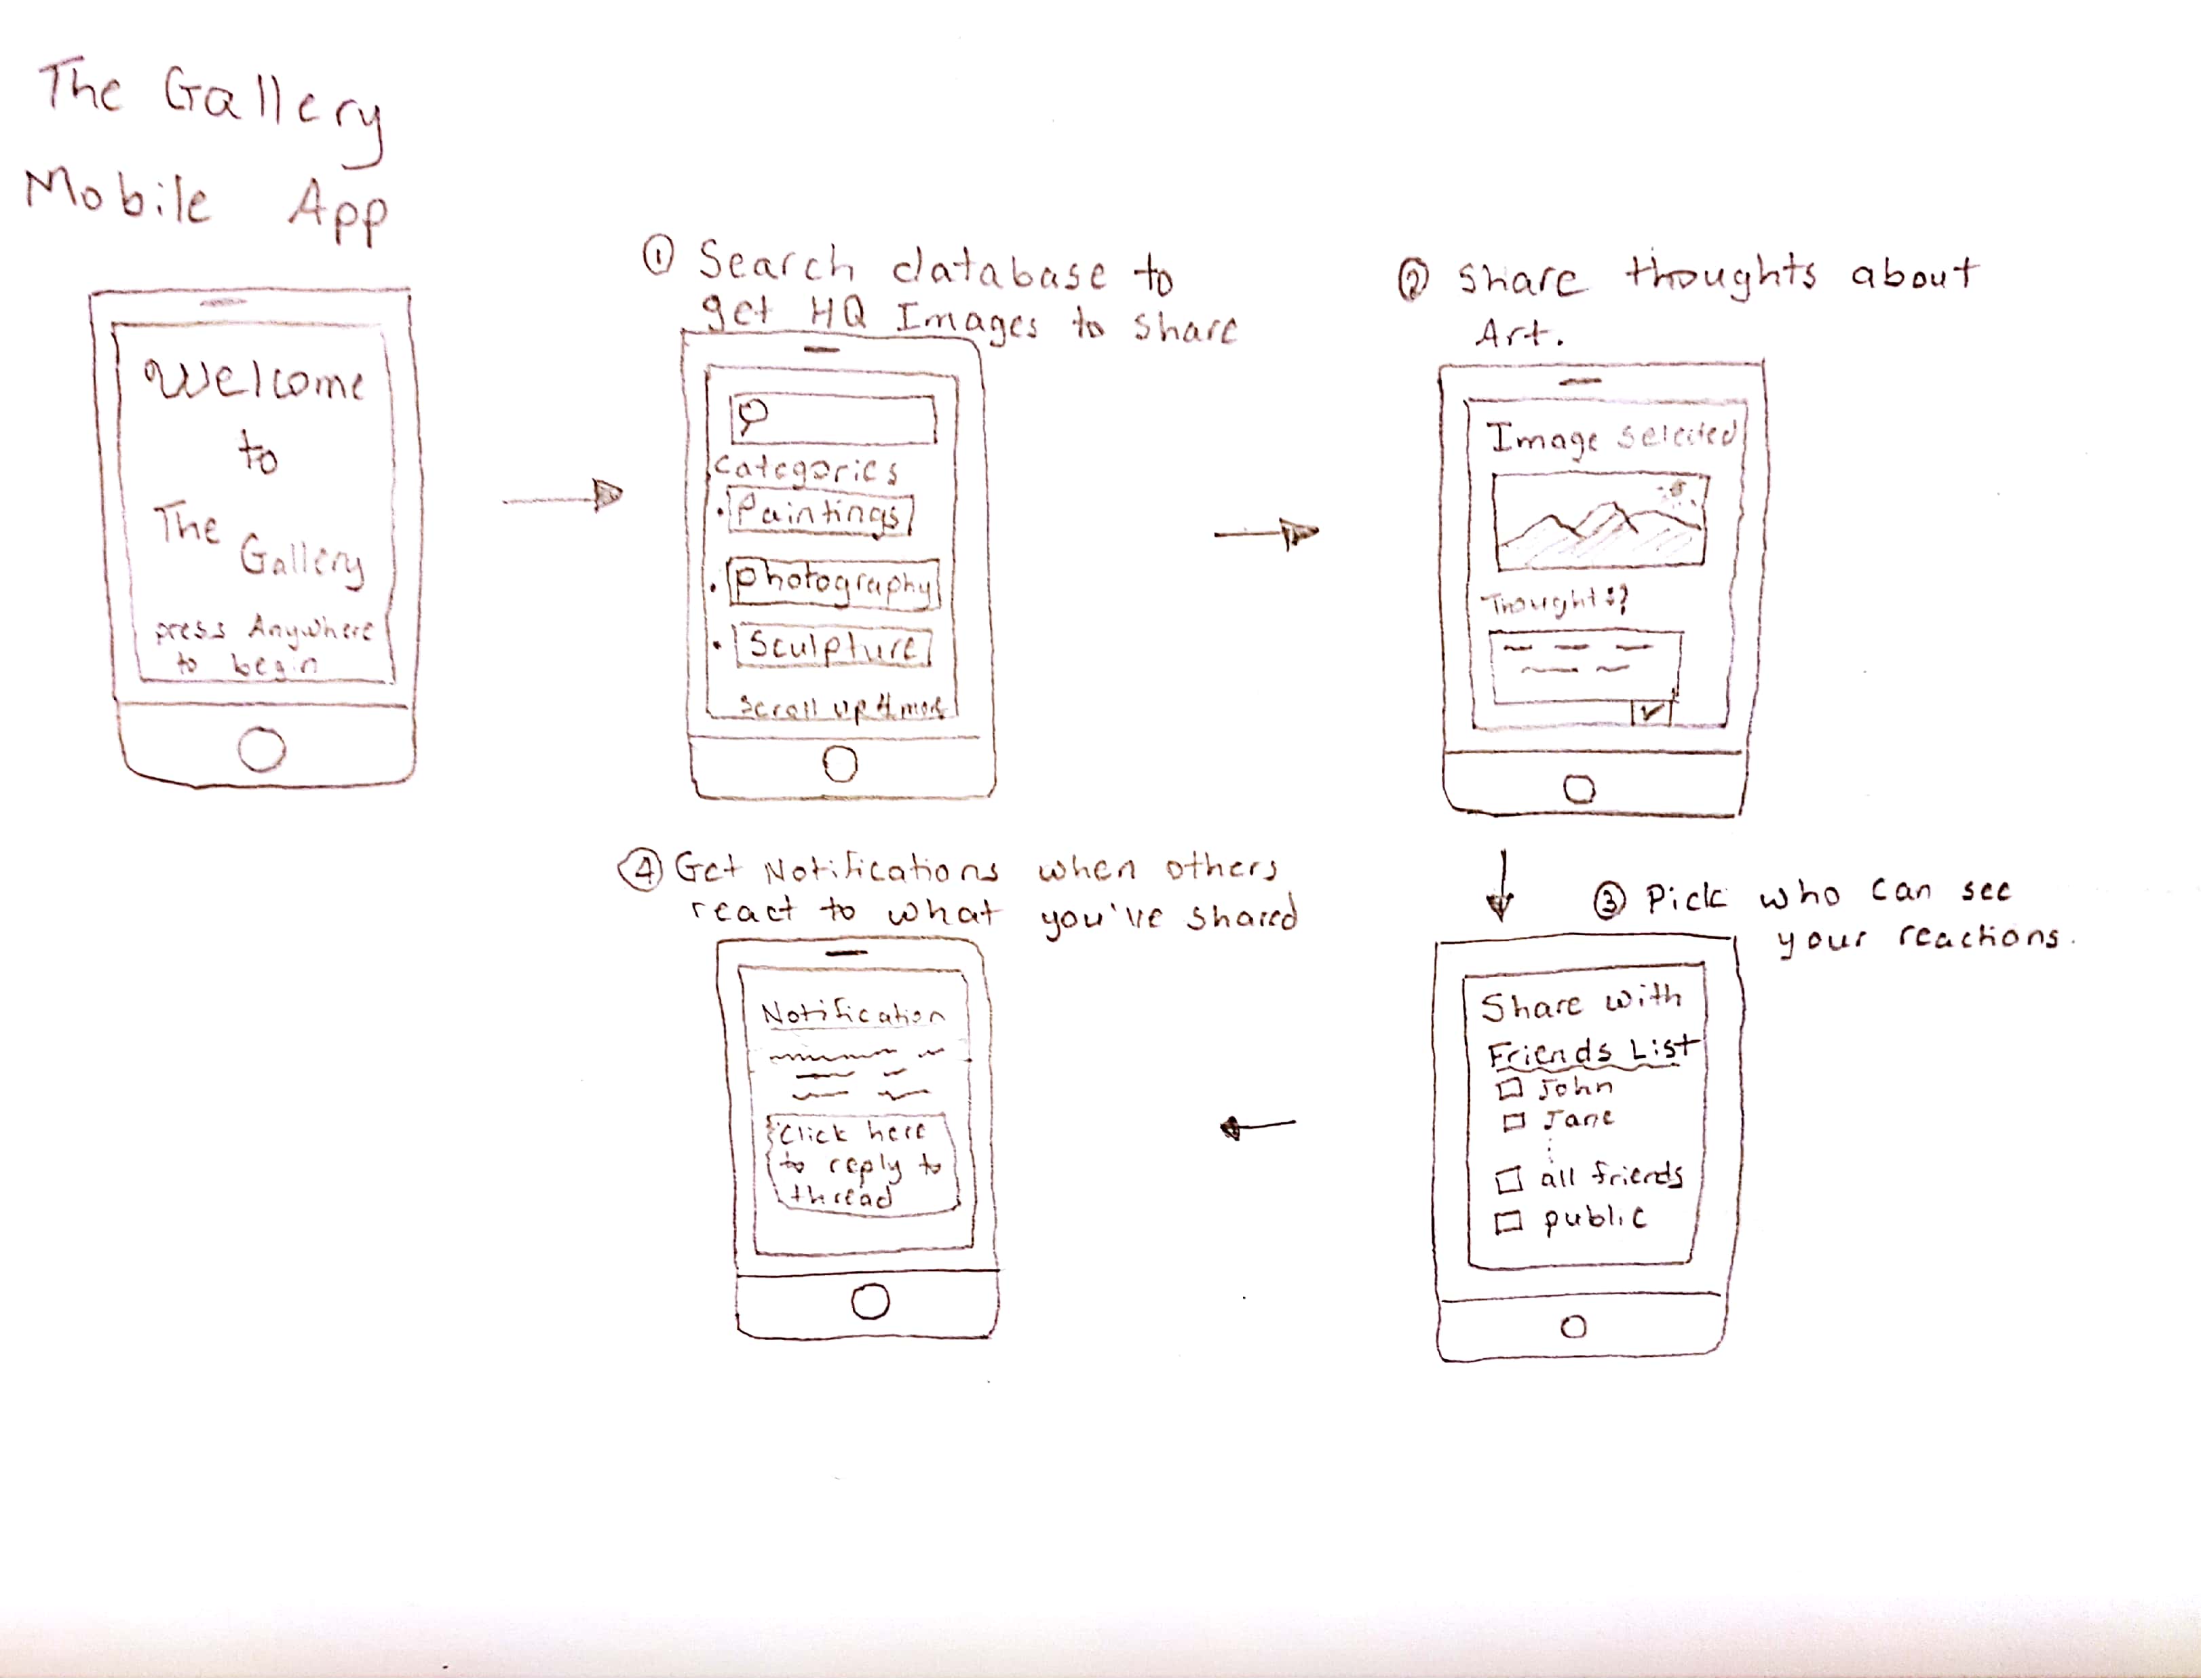 The Gallery
Mobile App
Welcome
to
The Gallery
press Anywhere
to begin
① Search database to
get HQ Images to share
Categories
• Paintings
• Photography
• Sculpture
Scroll up 4 more
② Share thoughts about
Art.
Image selected
Thoughts?
③ Pick who can see
your reactions.
Share with
Friends List
John
Jane
all friends
public
④ Get Notifications when others
react to what you've shared
Notification
Click here
to reply to
thread